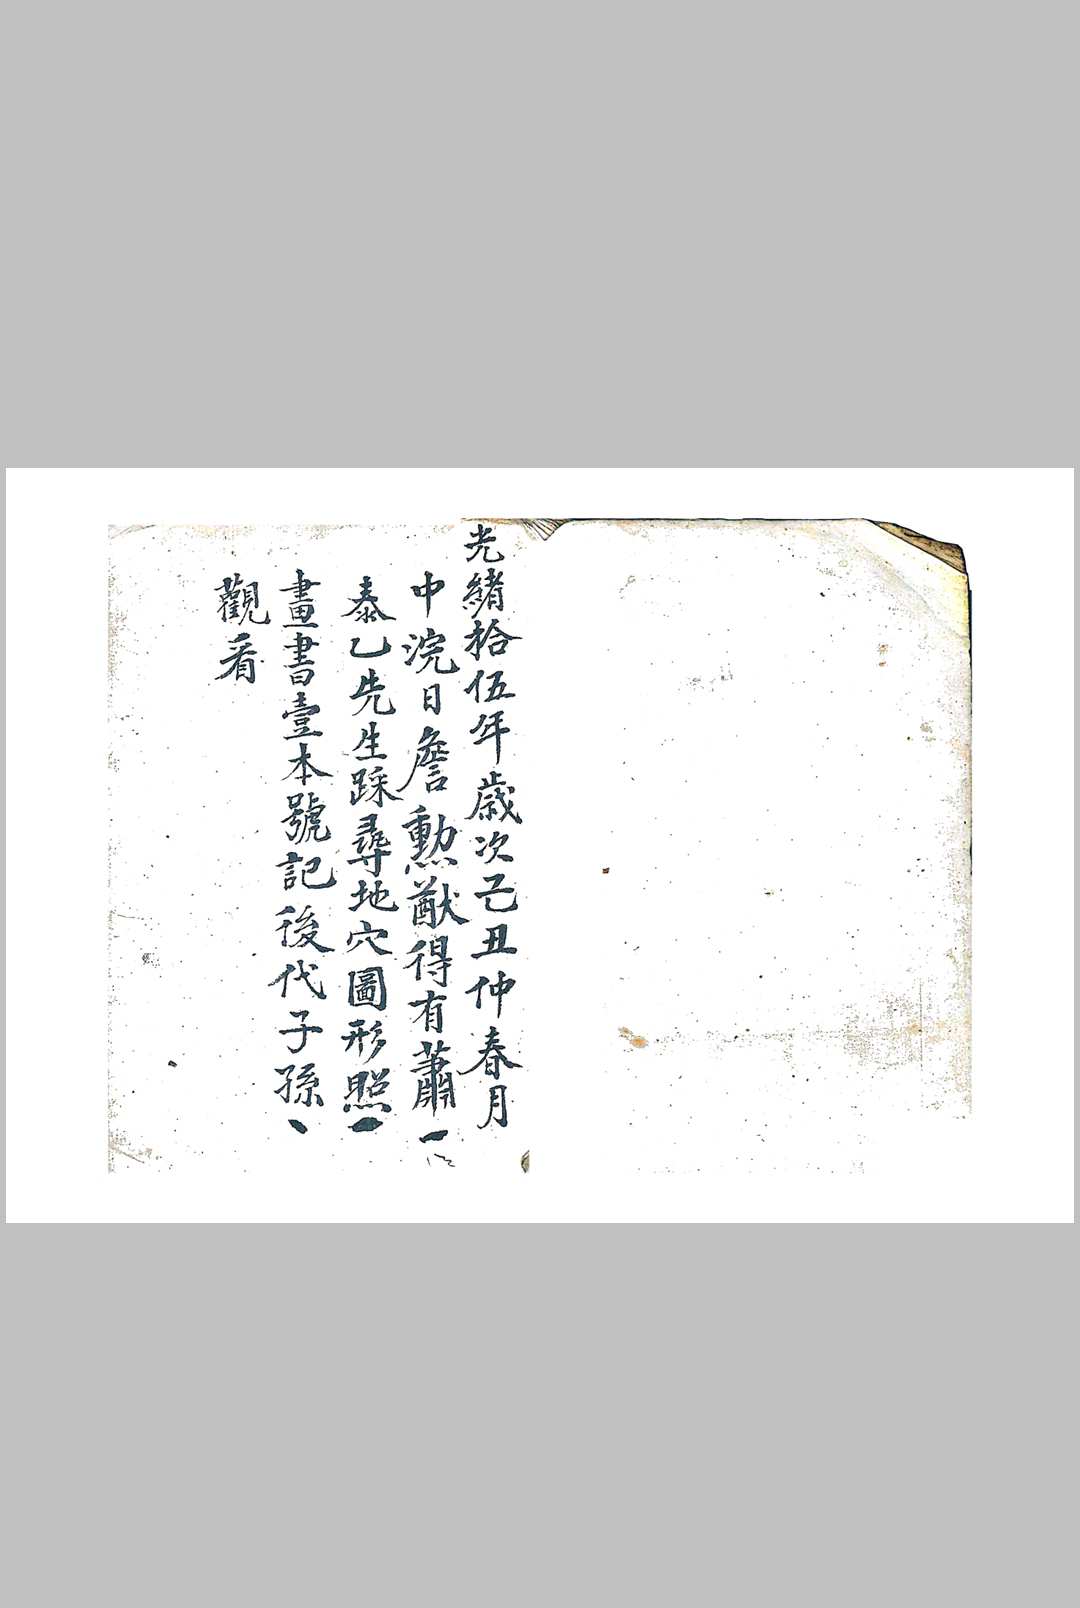 光緒拾伍年歲次己丑仲春月
中浣日詹勳猷得有蕭
泰乙先生踩尋地穴圖形照
畫書壹本號記後代子孫
觀看